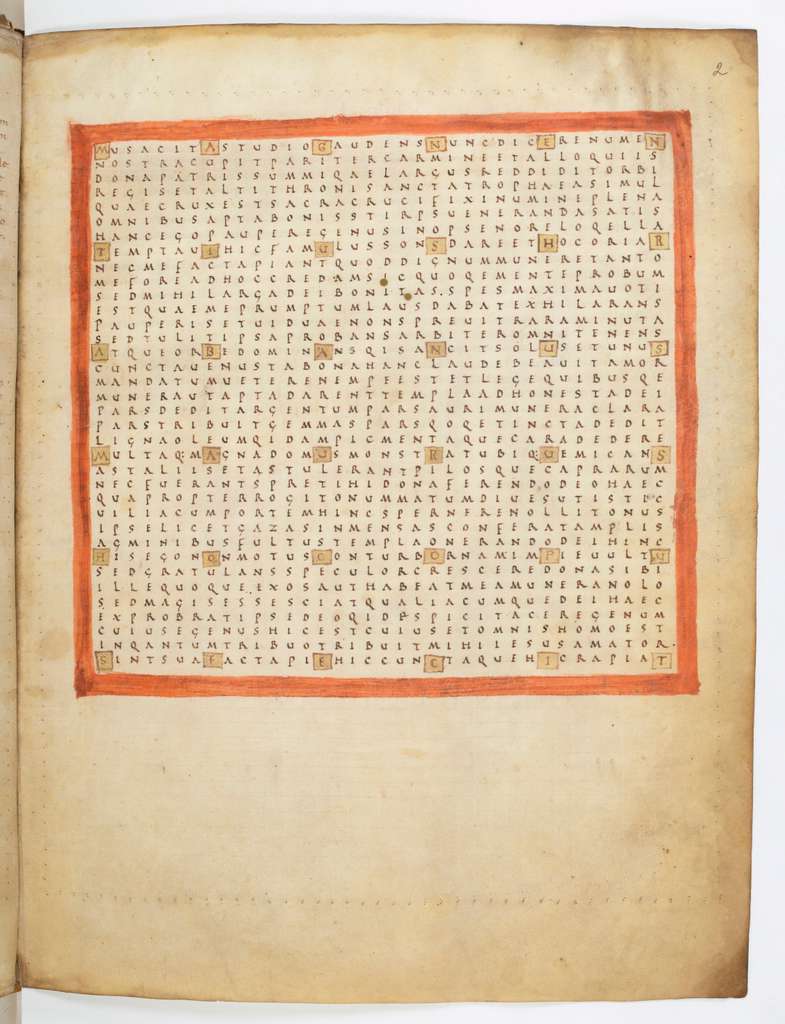 2
MUSACITASTUDIOGAUDENSNUNCDICERENUMEN
NOSTRACUPITPARITERCARMINEETALLOQUIIS
DONAPATRISSUMMIQAELARGUSREDDIDITORBI
REGISETALTITHRONISANCTATROPHAEASIMUL
QUAECRUXESTSACRACRUCIFIXINUMINEPLENA
OMNIBUSAPTABONISSTIRPSUENERANDASATIS
HANCEGOPAUPEREGENUSINOPSENORELOQELLA
TEMPTAUIHICFAMULUSSONSDAREETHOCORIAR
NECMEFACTAPIANTQUODDIGNUMMUNERETANTO
MEFOREADHOCCREDAMSICQUOQEMENTEPROBUM
SEDMIHILARGADEIBONITAS.SPESMAXIMAUOTI
ESTQUAEMEPRUMPTUMLAUSDABATEXHILARANS
PAUPERISETUIDUAENONSPREUITRARAMINUTA
AESTULITIPSAPROBANSARBITEROMNITENENS
ATQUEORBEDOMINANSQISANCITSOLUSETUNUS
CUNCTAUENUSTABONAHANCLAUDEBEAUITAMOR
MANDATUMUETERENEMPEESTETLEGEQUIBUSQE
MUNERAUTAPTADARENTTEMPLAADHONESTADEI
PARSDEDITARGENTUMPARSAURIMUNERACLARA
PARSTRIBUITGEMMASPARSQOQETINCTADEDIT
LIGNAOLEUMQIDAMPIGMENTAQUECARADEDERE
MULTAQ:MAGNADOMUSMONSTRATUBIQ:GEMICANS
ASTALIISETASTULERANTPILOSQUECAPRARUM
NECFUERANTSPRETIHIDONAFERENDODEOHAEC
QUAPROPTERROGITONUMMATUMDIUESUTISTIC
UILIACUMPORTEMHINCSPERNERENOLLITONUS
IPSELICETGAZASINMENSASCONFERATAMPLIS
AGMINIBUSFULTUSTEMPLAONERANDODEIHINC
HISEGONONMOTUSCONTURBORNAMIMPIEUULTU
SEDGRATULANSSPECULORCRESCEREDONASIBI
ILLEQUOQUEEXOSAUTHABEATMEAMUNERANOLO
SEDMAGISESSESCIATQUALIACUMQUEDEIHAEC
EXPROBRATIPSEDEOQIDESPICITACEREGENUM
CUIUSEGENUSHICESTCUIUSETOMNISHOMOEST
INQANTUMTRIBUOTRIBUITMIHIIESUSAMATOR.
SINTSUAFACTAPIEHICCUNCTAQUEHICRAPIAT